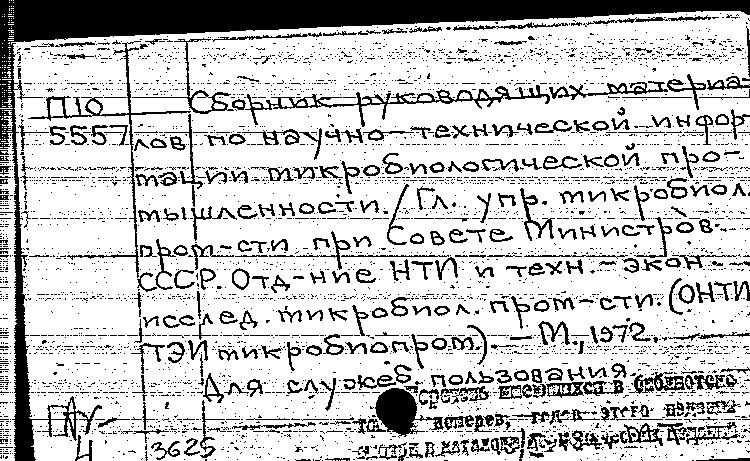 П10 Сборник руководящих материа-
5557 лов по научно-технической инфор-
мации микробиологической про-
мышленности. / Гл. упр. микробиол.
пром-сти при Совете Министров
СССР. Отд-ние НТИ и техн.-экон.
исслед. микробиол. пром-сти. (ОНТИ
ТЭИ микробиопром). – М., 1972.
Для служеб. пользования.
имеющихся в библиотеке
номерев, годев этого
4 3625